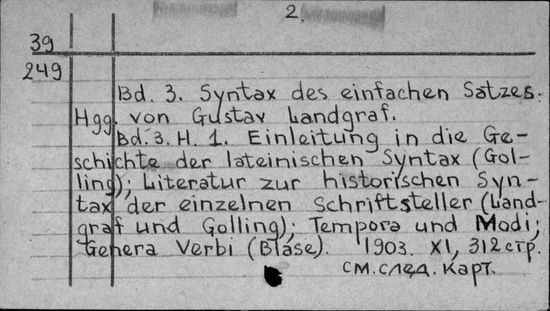 2.
39
249
Bd. 3. Syntax des einfachen Satzes.
Hgg. von Gustav Landgraf.
Bd. 3. H. 1. Einleitung in die Ge-
schichte der lateinischen Syntax (Gol-
ling); Literatur zur historischen Syn-
tax der einzelnen Schriftsteller (Land-
graf und Golling); Tempora und Modi;
Genera Verbi (Blase). 1903. XI, 312 стр.
см. след. карт.